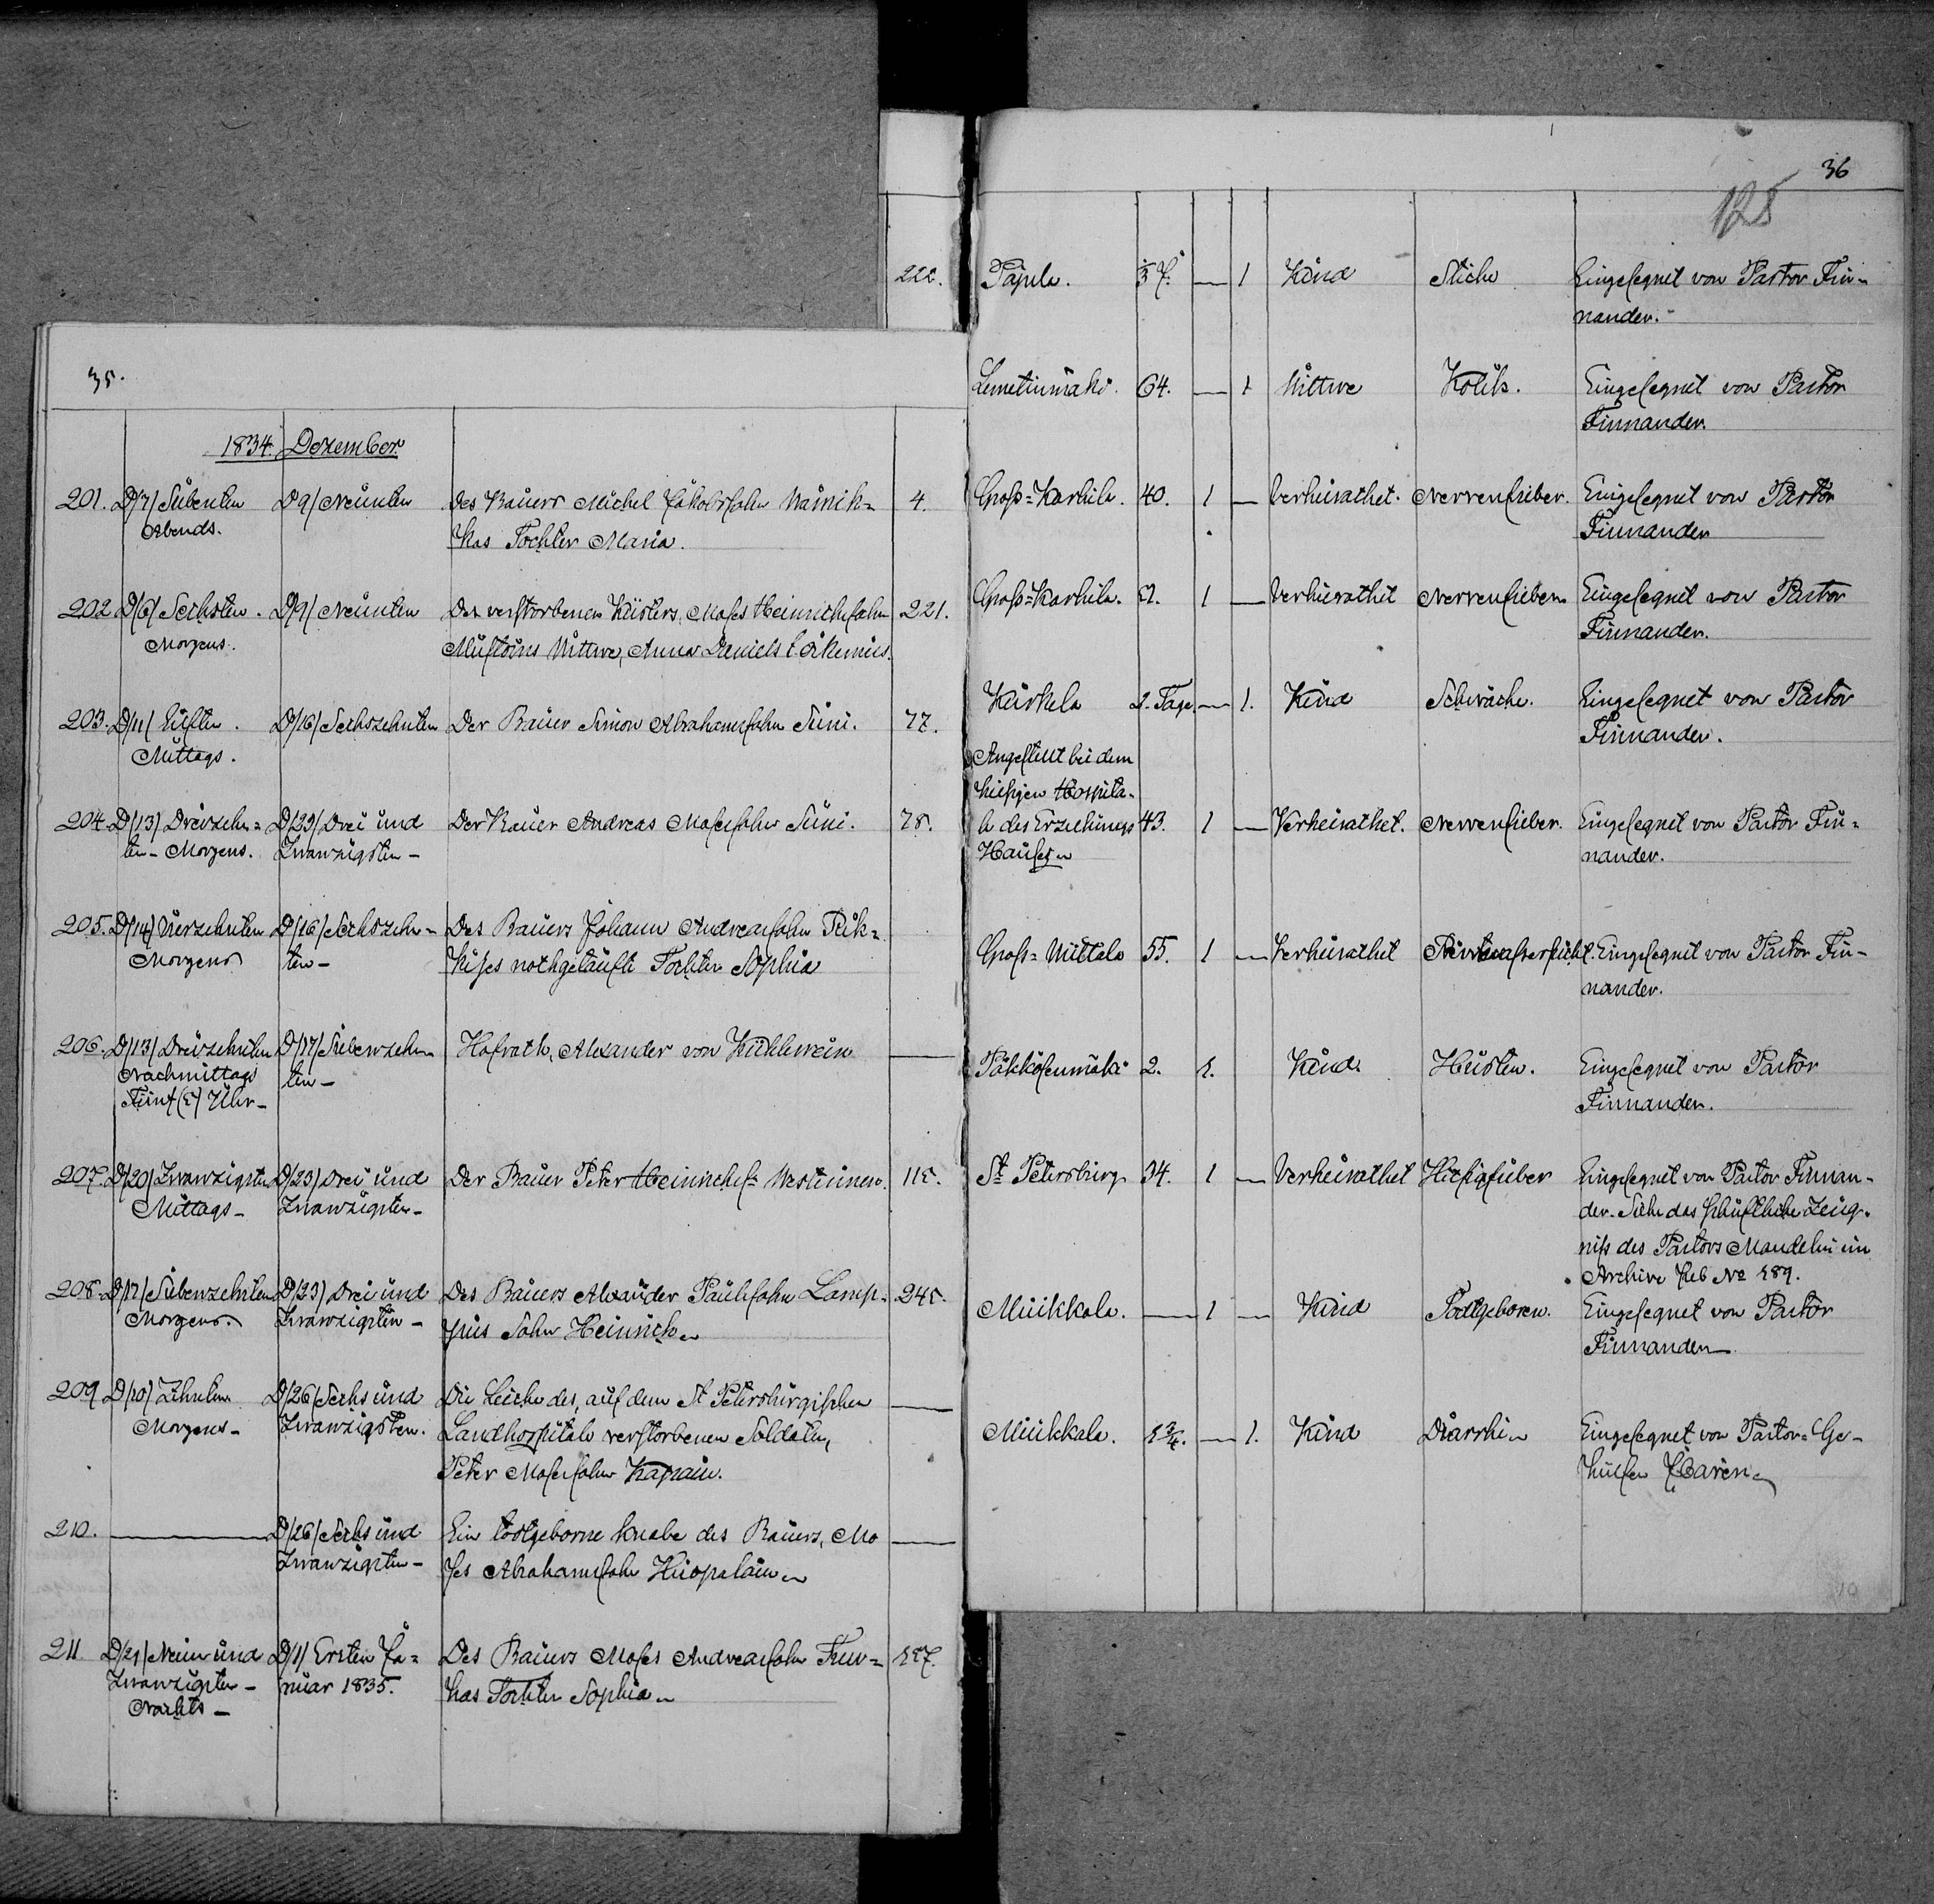 35.
1834. Dezember
201. D/7/ Siebenten D 9/ Neunten Des Bauers Michel Jakobssohn Wainik= 4.
Abends. kas Tochter Maria.
202 D/6/ Sechsten. D/9/ Neunten Des verstorbenen Küsters, Moses Heinrichssohn 221.
Morgens. Wittwe, Anna Daniels t.
203. D/11/ Eilften. D/16/ Sechszehnten Der Bauer Simon Abrahamssohn Suni. 77.
Mittags.
204. D/13) Dreizehn= D/23) Drei und Der Bauer Andreas Mosessohn Suni. 78.
ten - Morgens. Zwanzigsten -
205. D/14) Vierzehnten D/16/ Sechszehn- Des Bauers Johann Andreassohn Puk=
Morgens ten - kises nothgetaufte Tochter Sophia
206. D/13/ Dreizehnten D/17/ Siebenzehn- Hofrath, Alexander von Kühlewein
Nachmittags ten -
Fünf (5) Uhr -
207. D/20) Zwanzigsten D/23) Drei und Der Bauer Peter Heinrichs Westinnen. 115.
Mittags - Zwanzigsten -
208. D/17/ Siebenzehnten D/23) Drei und Des Bauers Alexander Paulssohn Lamp- 245.
Morgens. Zwanzigsten - Sohn Heinrich
209 D/10) Zehnten D/26/ Sechs und Die Leiche des, auf dem St Petersburgischen
Morgens - Zwanzigsten. Landhospitale verstorbenen Soldaten,
Peter Mosessohn Kapain.
210. D/26/ Sechs und Ein todtgeborne Knabe des Bauers, Mo
Zwanzigsten - ses Abrahamssohn
211 D/29/ Neun und D/1/ Ersten Ja= Des Bauers Moses Andreassohn
Zwanzigsten - nuar 1835. kas Tochter Sophia
Nachts -
36
128
222. Papula. 1 Kind Stiche Eingesegnet von Pastor Fin-
nander.
Lemetinmäki. 64. 1 Wittwe Kolik. Eingesegnet von Pastor
Finnander.
Gross=Karhila. 40. 1 Verheirathet. Nervenfieber. Eingesegnet von Pastor
Finnander
Gross=Karhila. 1 Verheirathet Nervenfieber. Eingesegnet von Pastor
Finnander.
Kurkela 2. Tage. 1. Kind Schwäche. Eingesegnet von Pastor
Finnander.
Angestellt bei dem
hiesigen Hospita-
le des Erziehungs 43. 1 Verheirathet. Nervenfieber. Eingesegnet von Pastor Fin-
Hauses nander.
Gross=Wittala 55. 1 Verheirathet Eingesegnet von Pastor Fin-
nander.
Päkkösenmäki 2. 1. Kind Husten. Eingesegnet von Pastor
Finnander.
St Petersburg 34. 1 Verheirathet Hitzigfieber Eingesegnet von Pastor Finnan-
der. Siehe das schriftliche Zeug-
niss des Pastors Mandelin im
Archive sub No 589.
Miikkala. 1 Kind Todtgeboren. Eingesegnet von Pastor
Finnander
Miikkala. 5 3/4. 1. Kind Diarrhi Eingesegnet von Pastor=Ge-
hülfen